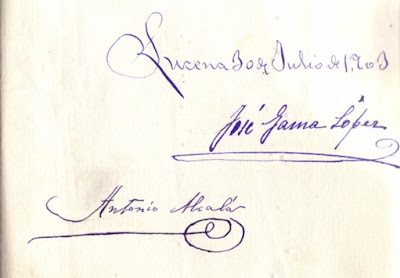 Lucena 30 de Julio de 1903
José Gama López
Antonio Alcalá